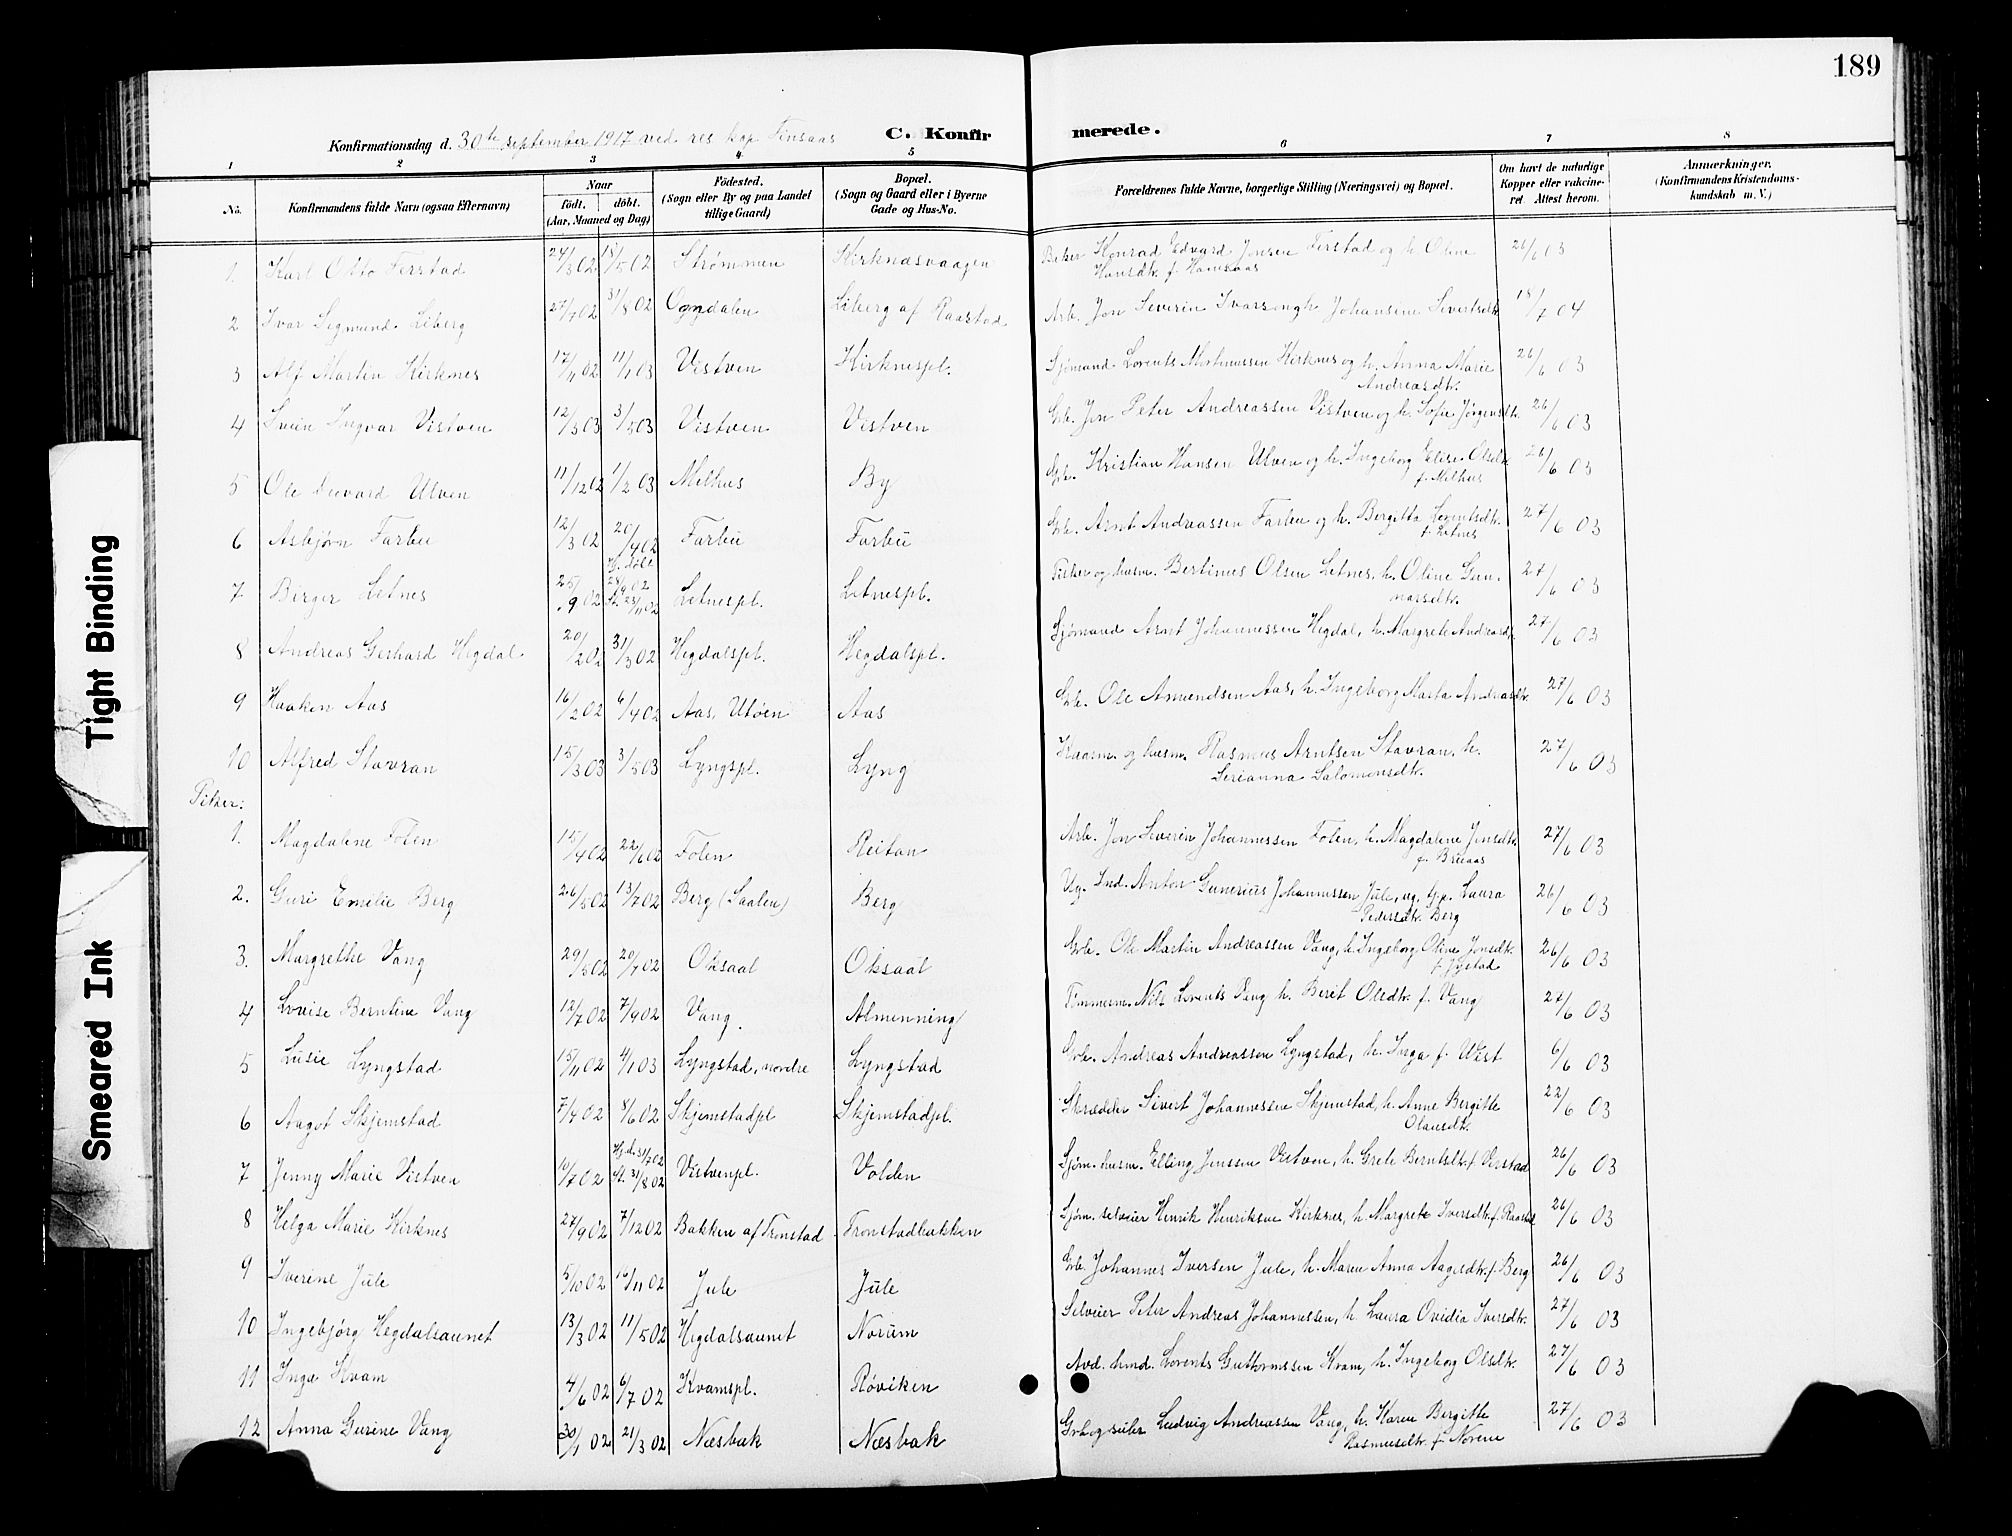 189
Konfirmationsdag d. 30te september 1917 ved res kap Finsaas C. Konfirmerede.
1 2 3 4 5 6 7 8
No. Konfirmandens fulde Navn (ogsaa Efternavn) Naar født. døbt. (Aar, Maaned og Dag) Fødested. (Sogn eller By og paa Landet tillige Gaard) Bopæl. (Sogn og Gaard eller i Byerne Gade og Hus-No. Forældrenes fulde Navne, borgerlige Stilling (Næringsvei) og Bopæl. Om havt de naturlige Kopper eller vakcineret. Attest herom. Anmærkninger. (Konfirmandens Kristendomskundskab m. V.)
1. Karl Otto Ferstad 24/3 02 18/5 02 Strømmen Kirknæsvaagen Konrad Edvard Jensen Ferstad og h. Oline Hansdtr. f. Hansaas 26/6 03
2 Ivar Sigmund Liberg 27/7 02 31/8 02 Ogndalen Liberg af Raastad Arb. Jon Severin Ivarsen h. Johansine Sivertsdtr. 18/7 04
3 Alf Martin Kirknes 17/11 02 11/1 03 Vistven Kirknespl. Sjømand Lorents Kirknes og h. Anna Marie Andreasdtr. 26/6 03
4 Svein Ingvar Vistven 12/3 03 3/5 03 Vistven Vistven Grb. Jon Peter Andreassen Vistven og h. Sofie Jørgensdtr. 26/6 03
5 Ole Ulven 11/12 02 1/2 03 Melhus By Grb. Kristian Hansen Ulven og h. Ingeborg Elise Olsdtr. f. Melhus 26/6 03
6 Asbjørn Farbu 12/3 02 20/4 02 Farbu Farbu Grb. Arnt Andreassen Farbu og h. Bergitta Lorentsdtr. f. Letnes 27/6 03
7 Birger Letnes 25/9 02 Hj. døbt 28/9 02 St. 23/11 02 Letnespl. Letnespl. Fisker og husm. Bertinus Olsen Letnes, h. Oline Gunnarsdtr. 27/6 03
8 Andreas Gerhard Hegdal 20/2 02 31/3 02 Hegdalspl. Hegdalspl. Sjømand Arnt Johannessen Hegdal, h. Margrete Andreasd. 27/6 03
9 Haakon Aas 16/2 02 6/4 02 Aas, Utøen Aas Grb. Ole Amundsen Aas, h. Ingeborg Marta Andreasdtr. 27/6 03
10 Alfred Stavran 15/3 03 3/5 03 Lyngspl. Lyng og husm. Rasmus Arntsen Stavran, h. Serianna Salomonsdtr. 27/6 03
Piker:
1. Magdalene Folen 15/4 02 22/6 02 Folen Reitan Arb. Jon Severin Johannessen Folen, h. Magdalene Jonsdtr. 27/6 03
2. Guri Emilie Berg 26/5 02 13/7 02 Berg (Saalen) Berg Ug. Ind. Anton Gunerius Johannessen Jule, ug. Gp. Laura Pedersdtr. Berg 26/6 03
3. Margrethe Vang 29/5 02 20/7 02 Oksaal Oksaal Grb. Ole Martin Andreassen Vang, h. Ingeborg Oline Jonsdtr. f. Jystad 26/6 03
4 Lovise Berntine Vang 12/7 02 7/9 02 Vang. Almenning Tømmerm. Nils Lorents Peng h. Berit Olsdtr. f. Vang 27/6 03
5 Lusie Lyngstad 15/11 02 4/1 03 Lyngstad, nordre Lyngstad Grb. Andreas Andreassen Lyngstad, h. Inga f. West 6/6 03
6 Aagot Skjemstad 7/4 02 8/6 02 Skjemstadpl Skjemstadpl. Skrædder Sivert Johannessen Skjemstad, h. Anne Bergitte Olausdtr. 22/6 03
7 Jenny Marie Vistven 10/7 02 Hj.d. 31/7 02 St. 31/8 02 Vistvenpl. Volden Sjøm. husm. Elling Jenssen Vistven, h. Grete Berntsdtr. f. Verstad 26/6 03
8 Helga Marie Kirknes 27/9 02 7/12 02 Bakken af Tronstad Tronstadbakken Sjøm. selveier Henrik Henriksen Kirknes, h. Margrete Iversdtr. f. Raastad 26/6 03
9 Iverine Jule 5/10 02 16/11 02 Jule Jule Grb. Johannes Iversen Jule, h. Maren Anna Aagesdtr. f. Berg 26/6 03
10 Ingebjørg Hegdalsaunet 13/3 02 11/5 02 Hegdalsaunet Norum Selveier Peter Andreas Johannessen, h. Laura Ovidia Iversdtr. 27/6 03
11 Inga Kvam 4/6 02 6/7 02 Kvamspl. Røviken Avd. hmd. Lorents Guttormssen Kvam, h. Ingeborg Olsdtr. 27/6 03
12 Anna Gurine Vang 30/1 02 21/3 02 Næsbak Næsbak Grb. og seiler Ludvig Andreassen Vang, h. Karen Bergitte Rasmusdtr. f. Norene 27/6 03
Tight Binding
Smeared Ink